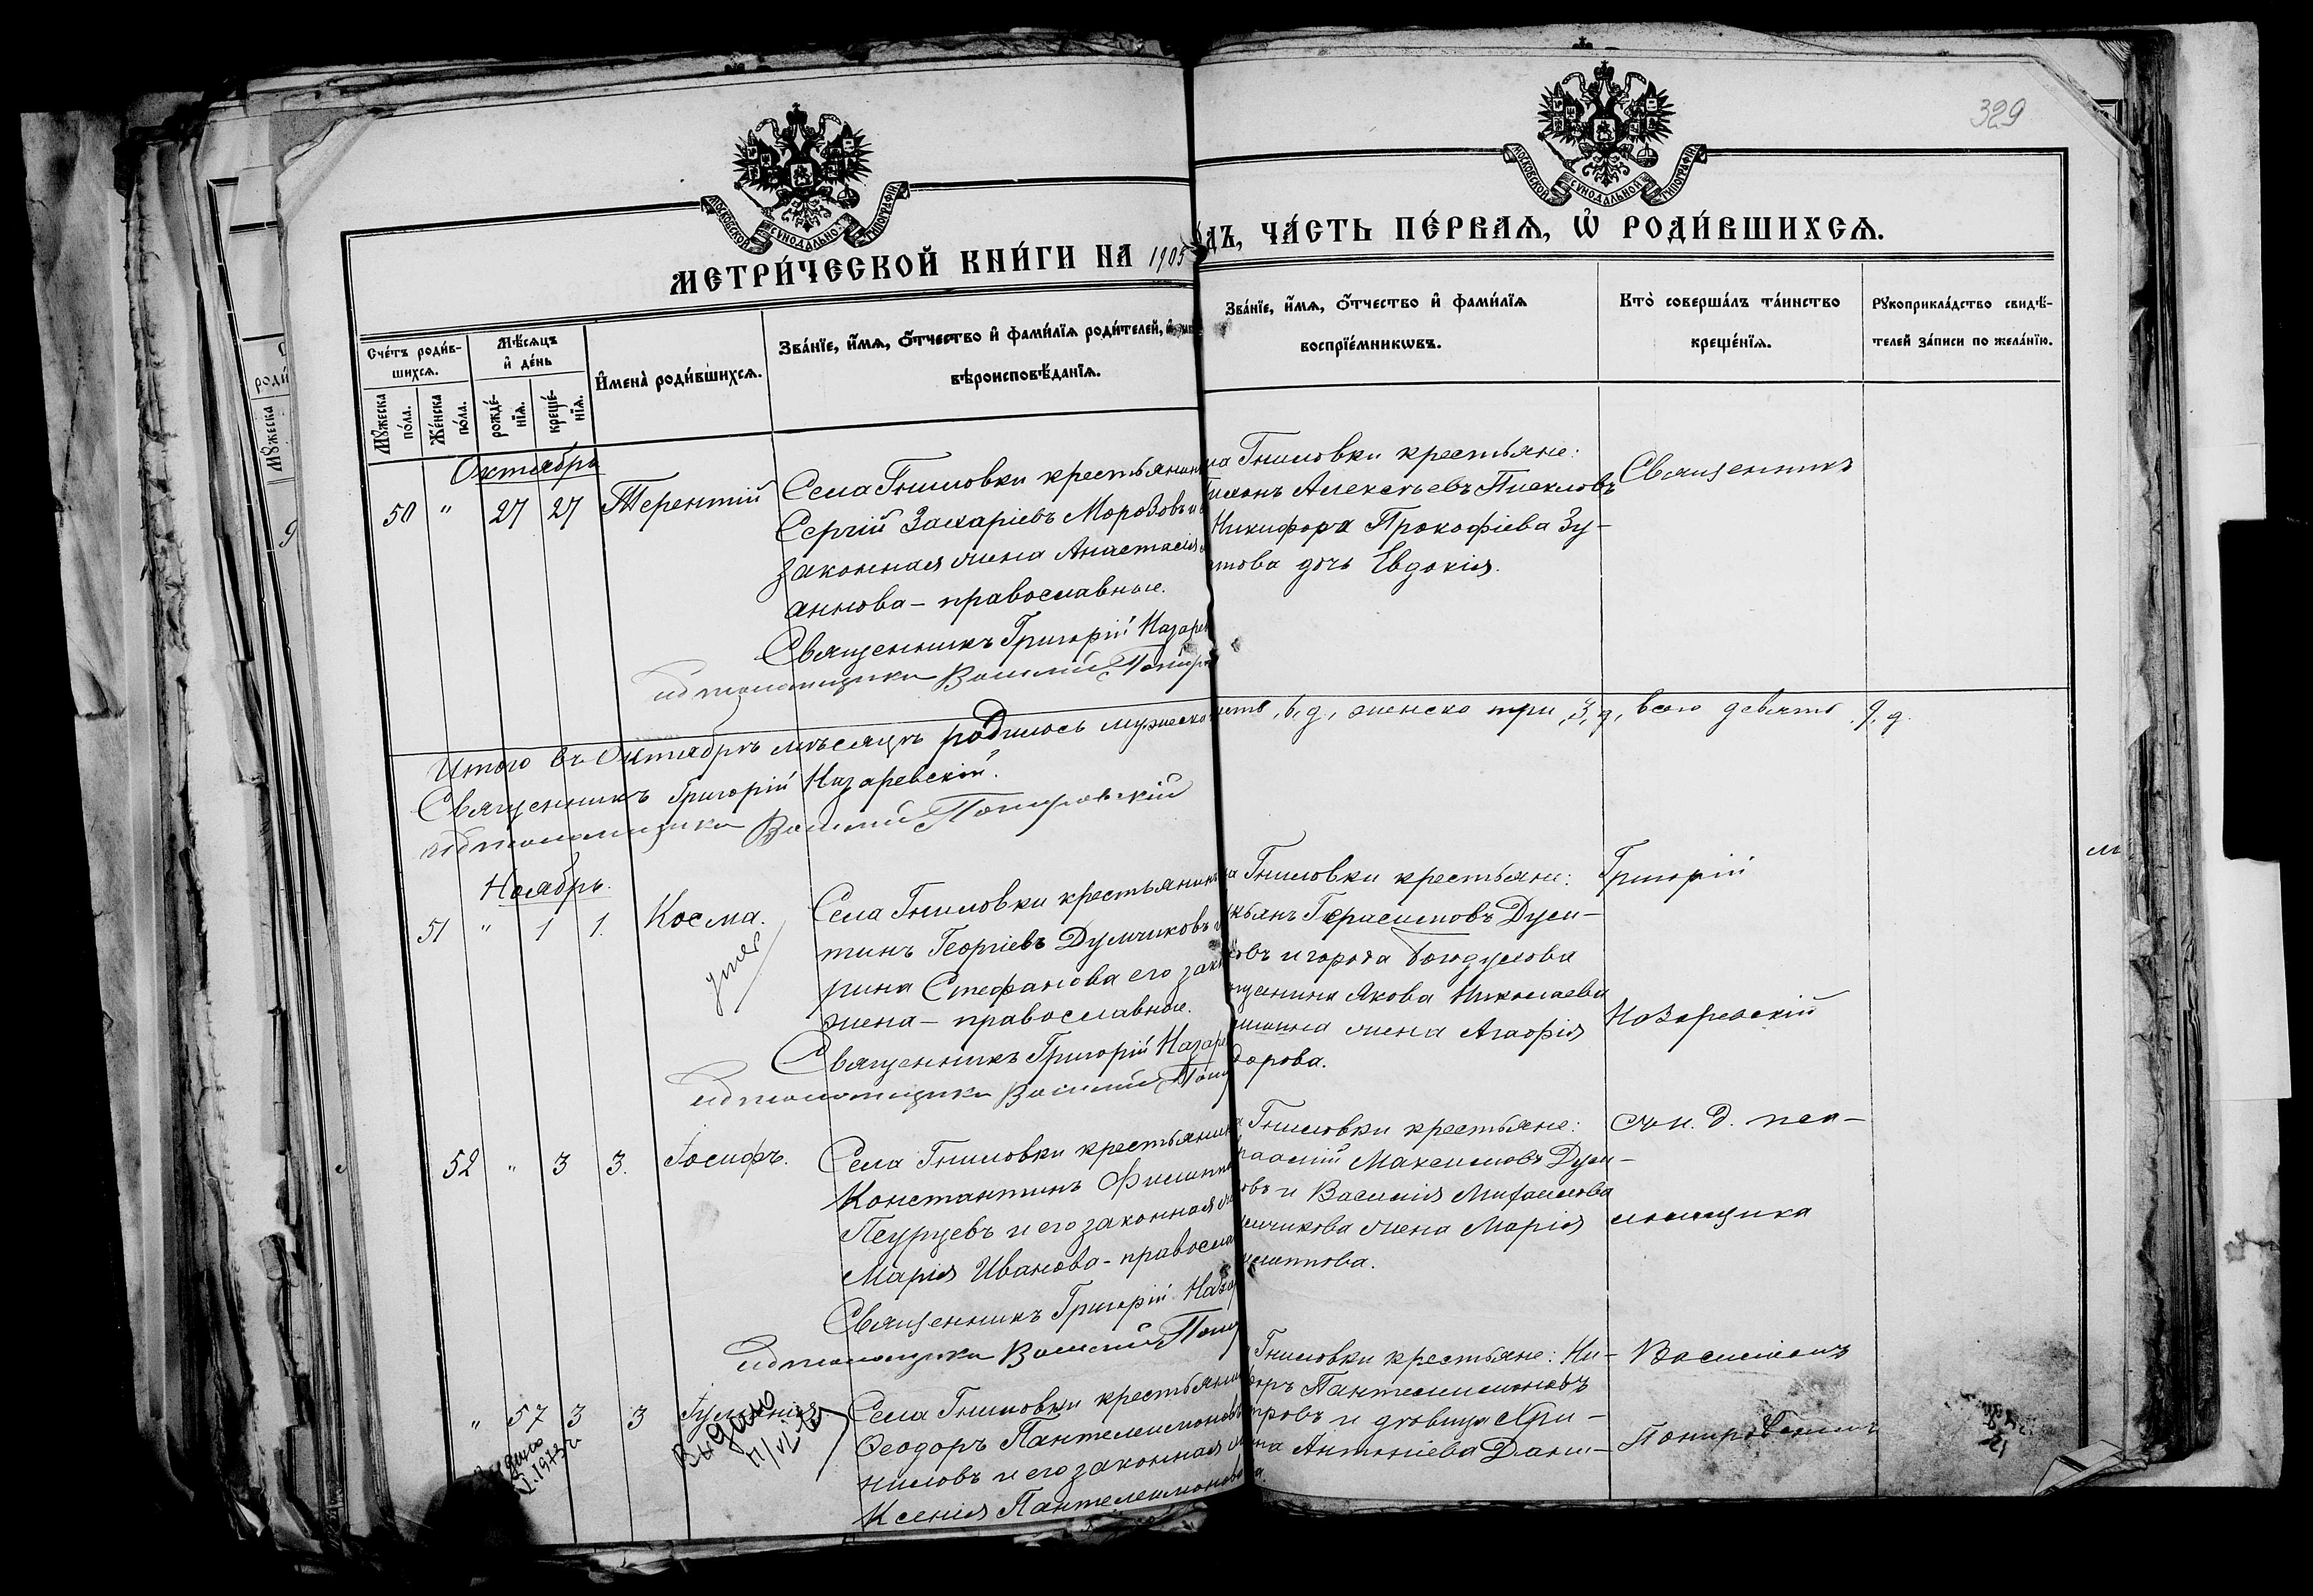 329
МОСКОВСКОЙ СѴНОДАЛЬНОЙ ТИПОГРАФІИ
МОСКОВСКОЙ СѴНОДАЛЬНОЙ ТИПОГРАФІИ
МЕТРИ́ЧЕСКОЙ КНИ́ГИ НА 1905
ДЪ, ЧА́СТЬ ПЕ́РВАѦ, Ѽ РОДИ́ВШИХСѦ.
Сче́тъ роди́в-
шихсѧ.
Мꙋ́жеска по́ла.
Же́нска по́ла.
Мѣ́сѧцъ
и҆ де́нь
рожде́-
нїѧ.
креще́-
нїѧ.
И҆мена̀ роди́вшихсѧ.
Зва́нїе, и҆́мѧ, ѻ҆́тчество и҆ фами́лїѧ роди́телей, и҆
вѣроисповѣ́данїѧ.
Зва́нїе, и҆́мѧ, ѻ҆́тчество и҆ фами́лїѧ
воспрїе́мникѡвъ.
Кто̀ соверша́лъ та́инство
креще́нїѧ.
Рꙋкоприкла́дство свидѣ́-
телей за́писи по жела́нїю.
Октябрь
50 " 27 27 Терентій
Села Гниловки крестьянинъ
Сергій Захаріевъ Морозовъ и е
законная жена Анастасія
аннова – православные.
Священникъ Григорій Назаре
псаломщика Василій
ла Гниловки крестьяне:
Алексѣевъ
Никифора Прокофіева Зу-
това дочь Евдокія.
Священникъ
Итого въ Октябрѣ мѣсяцѣ родилось мужеско
есть, 6, д, женско три, 3, д, всего девять 9, д.
Священникъ Григорій Назаревскій.
псаломщика Василій
Ноябрь.
51 " 1 1. Косма.
умер
Села Гниловки крестьянинъ
тинъ Георгіевъ Думчиковъ
рина Стефанова его зак
жена – православные.
Священникъ Григорій Назаре
псаломщика Василій
ла Гниловки крестьяне:
кьянъ Герасимовъ Дум-
ковъ и города Богодухова
щанина Якова Николаева
жена Агафія
дорова.
Григорій
Назаревскій
52 " 3 3. Іосифъ.
Села Гниловки крестьянинъ
Константинъ Филиппо
и его законная
Марія Иванова – правосла
Священникъ Григорій Наза
псаломщика Василій
Гниловки крестьяне:
Максимовъ Дум-
овъ и Василія Михаилова
мчикова жена Марія
липпова.
съ и. д. пса-
ломщика
" 57 3 3 Іуліанія
Выдано
Села Гниловки крестьянинъ
Ѳеодоръ Пантелеимоновъ
ниловъ и его законная
Ксенія Пантелеимонова
Гниловки крестьяне: Ни-
Пантелеимоновъ
и дѣвица Хри-
на Антоніева Дани-
Василіемъ